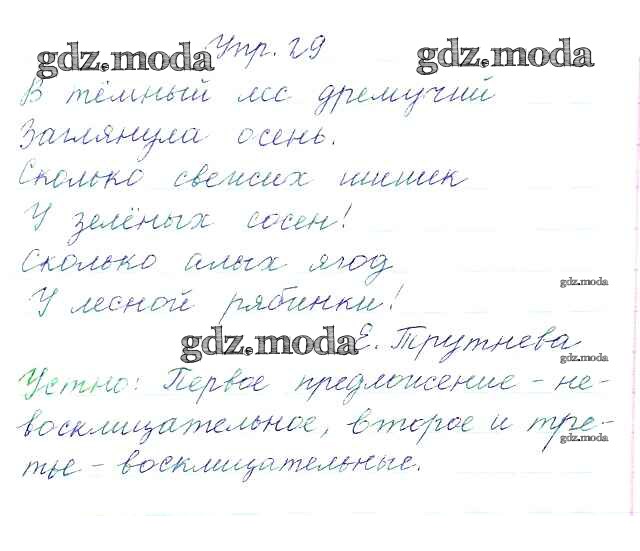 gdz.moda Упр. 29 gdz.moda
В тёмный лес дремучий
Заглянула осень.
Сколько свежих шишек
У зелёных сосен!
Сколько алых ягод
gdz.moda
У лесной рябинки!
gdz.moda Е. Трутнева
gdz.moda
Устно: Первое предложение – не-
восклицательное, второе и тре-
gdz.moda
тье – восклицательные.